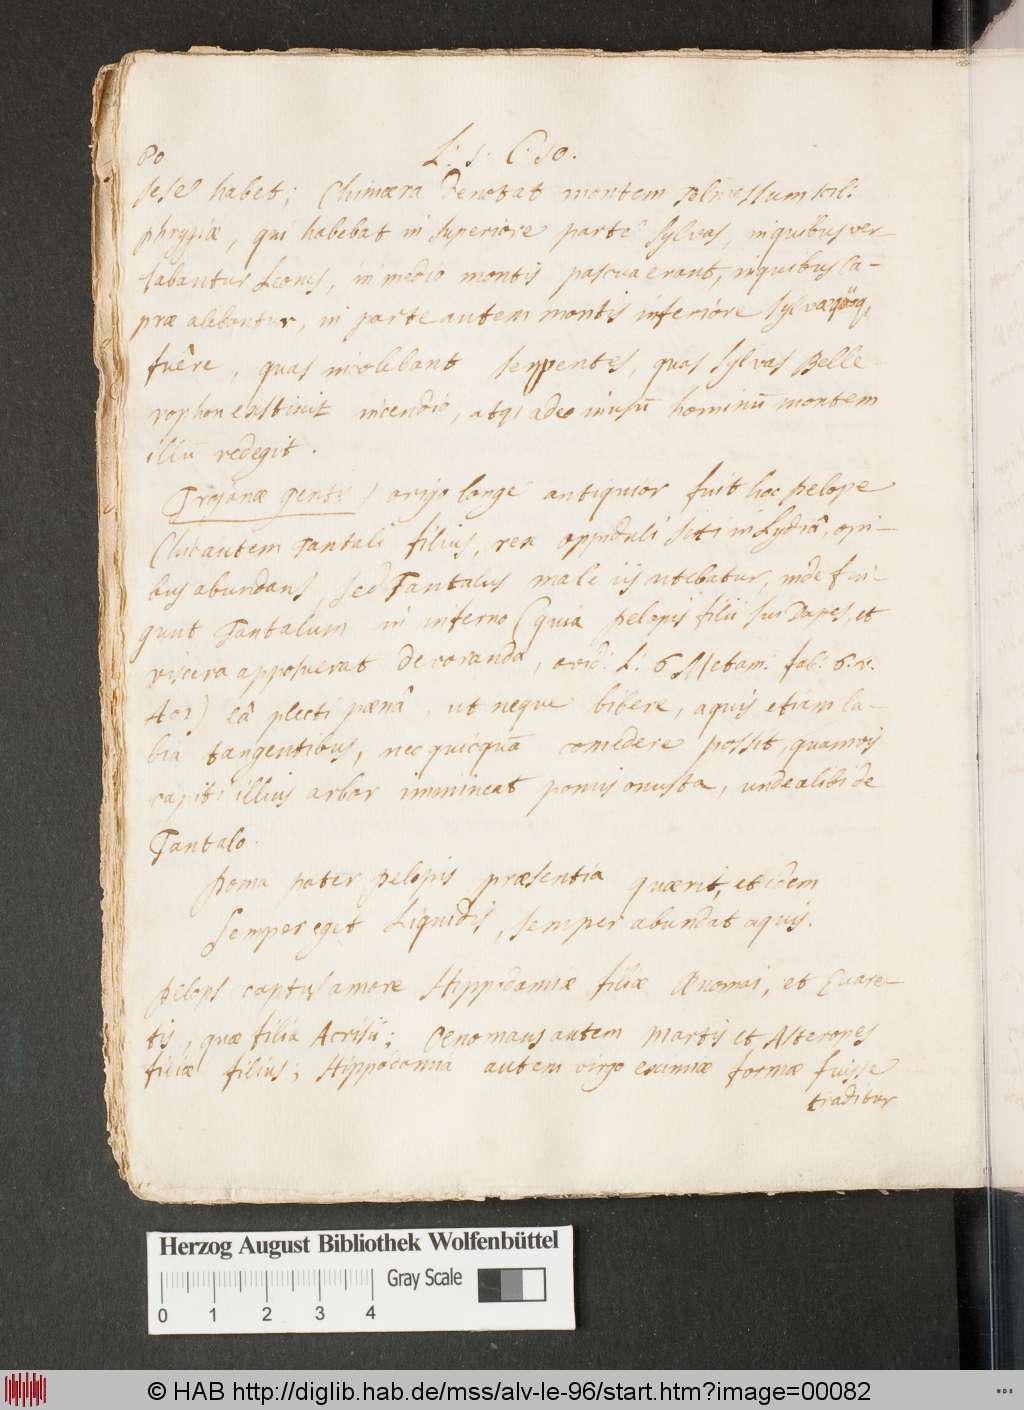 80
L: 1: C: 10.
sese habet; Chimæra denotat montem Telmessum
phrygiæ, qui habebat in superiore parte sylvas, in quibus ver-
sabantur Leones, in medio montis pascua erant, in quibus ca-
præ alebantur, in parte autem montis inferiore sylvæ
fuêre, quas incolebant serpentes, quas sylvas Belle-
rophon exstinxit incendio, atq; adeo in usū hominū montem
illū redegit.
Trojanæ gentis) origo longe antiquior fuit hoc Pelope
(hic autem Tantali filius, rex oppiduli siti in Lydiâ, opi-
bus abundans, sed Tantalus male iis utebatur, inde fin-
gunt Tantalum in inferno (quia Pelopis filii sui dapes, et
viscera apposuerat devoranda, ovid: L: 6 Metam: fab: 6. v.
401) eâ plecti pænâ, ut neque bibere, aquis etiam la-
bia tangentibus, nec quicquā comedere possit, quamvis
capiti illius arbor immineat pomis onusta, unde alibi de
Tantalo.
Poma pater Pelopis præsentia quærit, et idem
Semper eget Liquidis, semper abundat aquis.
Pelops captus amore Hippodamiæ filiæ Œnomai, et Evare-
tis, quæ filia Acrisii; Oenomaus autem Martis et Asteropes
filiæ filius; Hippodamia autem virgo exmiæ formæ fuisse
traditur
Herzog August Bibliothek Wolfenbüttel
Gray Scale
0 1 2 3 4
© HAB http://diglib.hab.de/mss/alv-le-96/start.htm?image=00082